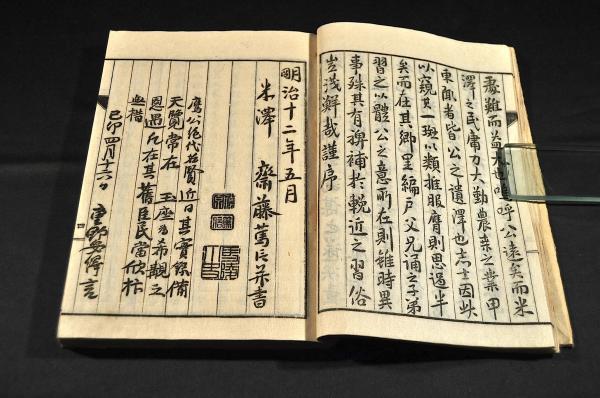 憂難而益大也嗚呼公遠矣而米
澤之民庸力大勤農桑之業甲
東聞者皆公之遺澤也士亦因此
以窺其一斑以類推服膺則思過半
矣而在其鄉里編戶父兄誦之子弟
習之以體公之意所在則雖時異
事殊其有裨補於輓近之習俗
豈淺鮮哉謹序
明治十二年五月
米澤 齋藤篤信并書
鷹公絕代
賢近日其實錄備
天覽常在 玉座
希覯之
恩遇凡在其舊臣民當
己卯四月